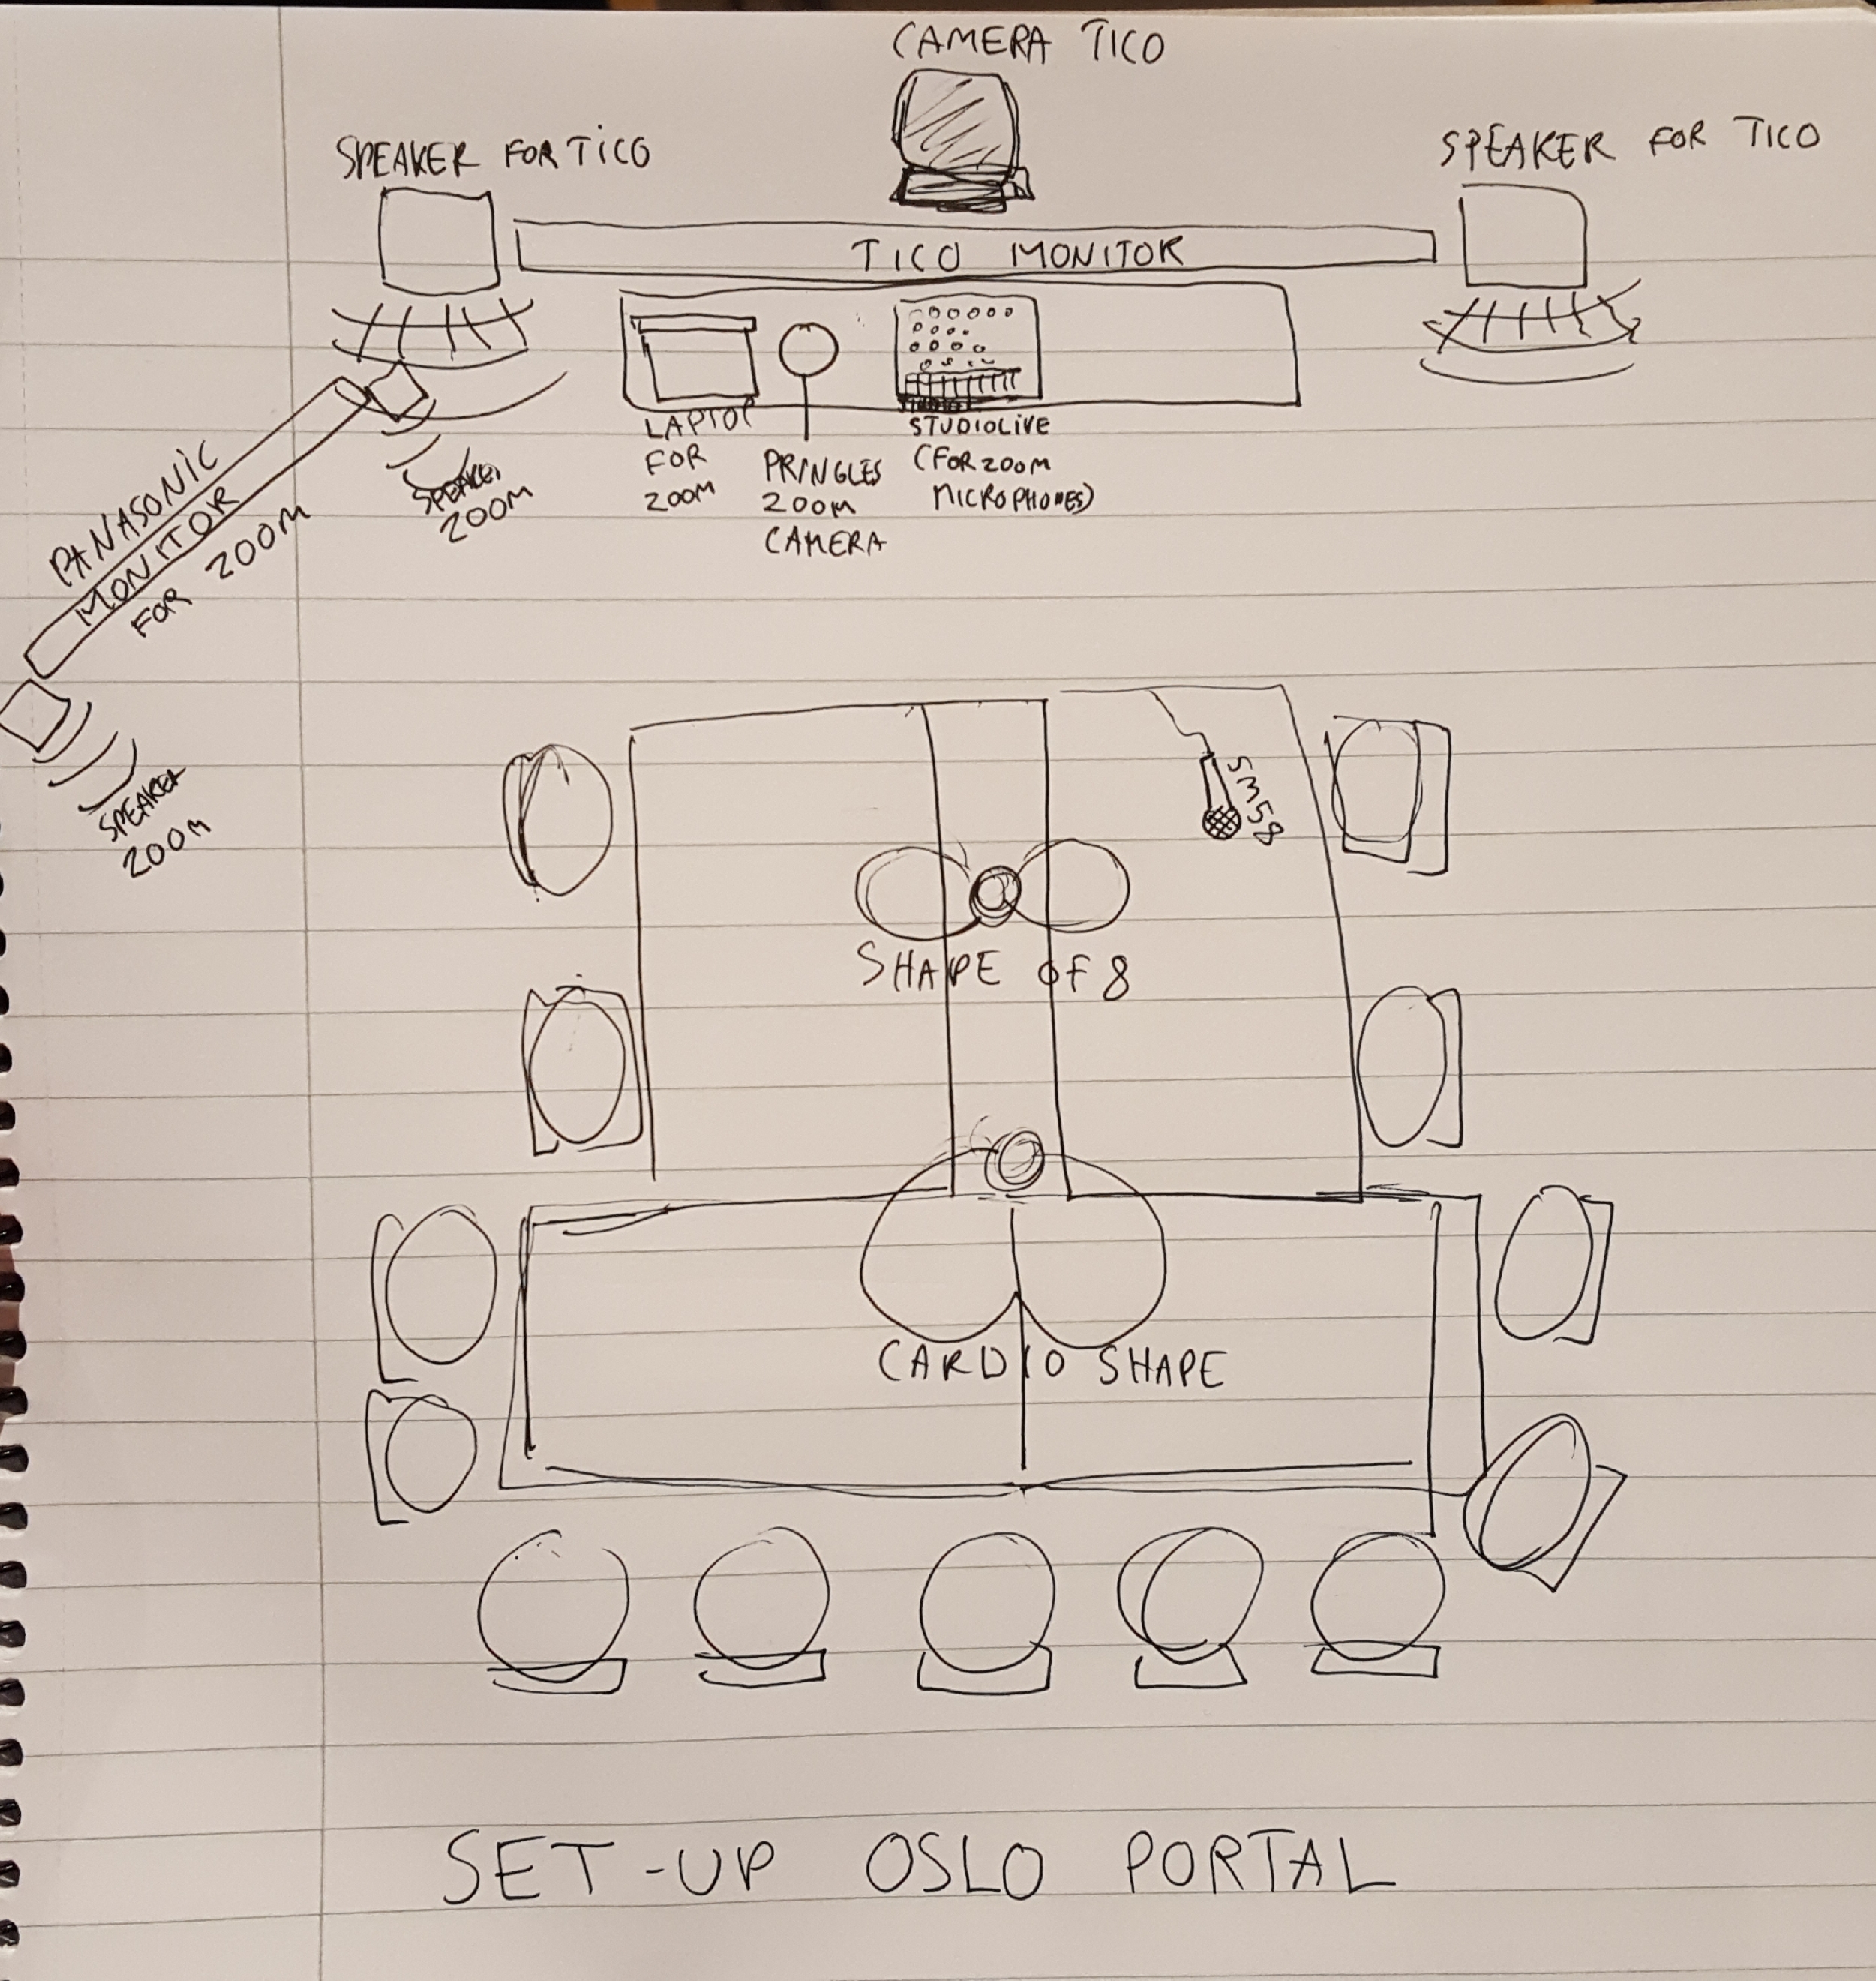 CAMERA TICO
SPEAKER FOR TICO
SPEAKER FOR TICO
TICO MONITOR
LAPTOP
FOR
ZOOM
PRINGLES
ZOOM
CAMERA
STUDIOLIVE
(FOR ZOOM
MICROPHONES)
PANASONIC
MONITOR
FOR ZOOM
SPEAKER
ZOOM
SPEAKER
ZOOM
SM58
SHAPE OF 8
CARDIO SHAPE
SET-UP OSLO PORTAL